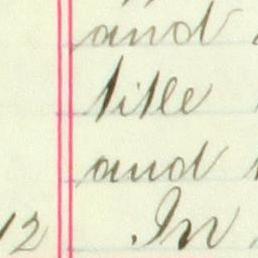 and
title
and
12 In